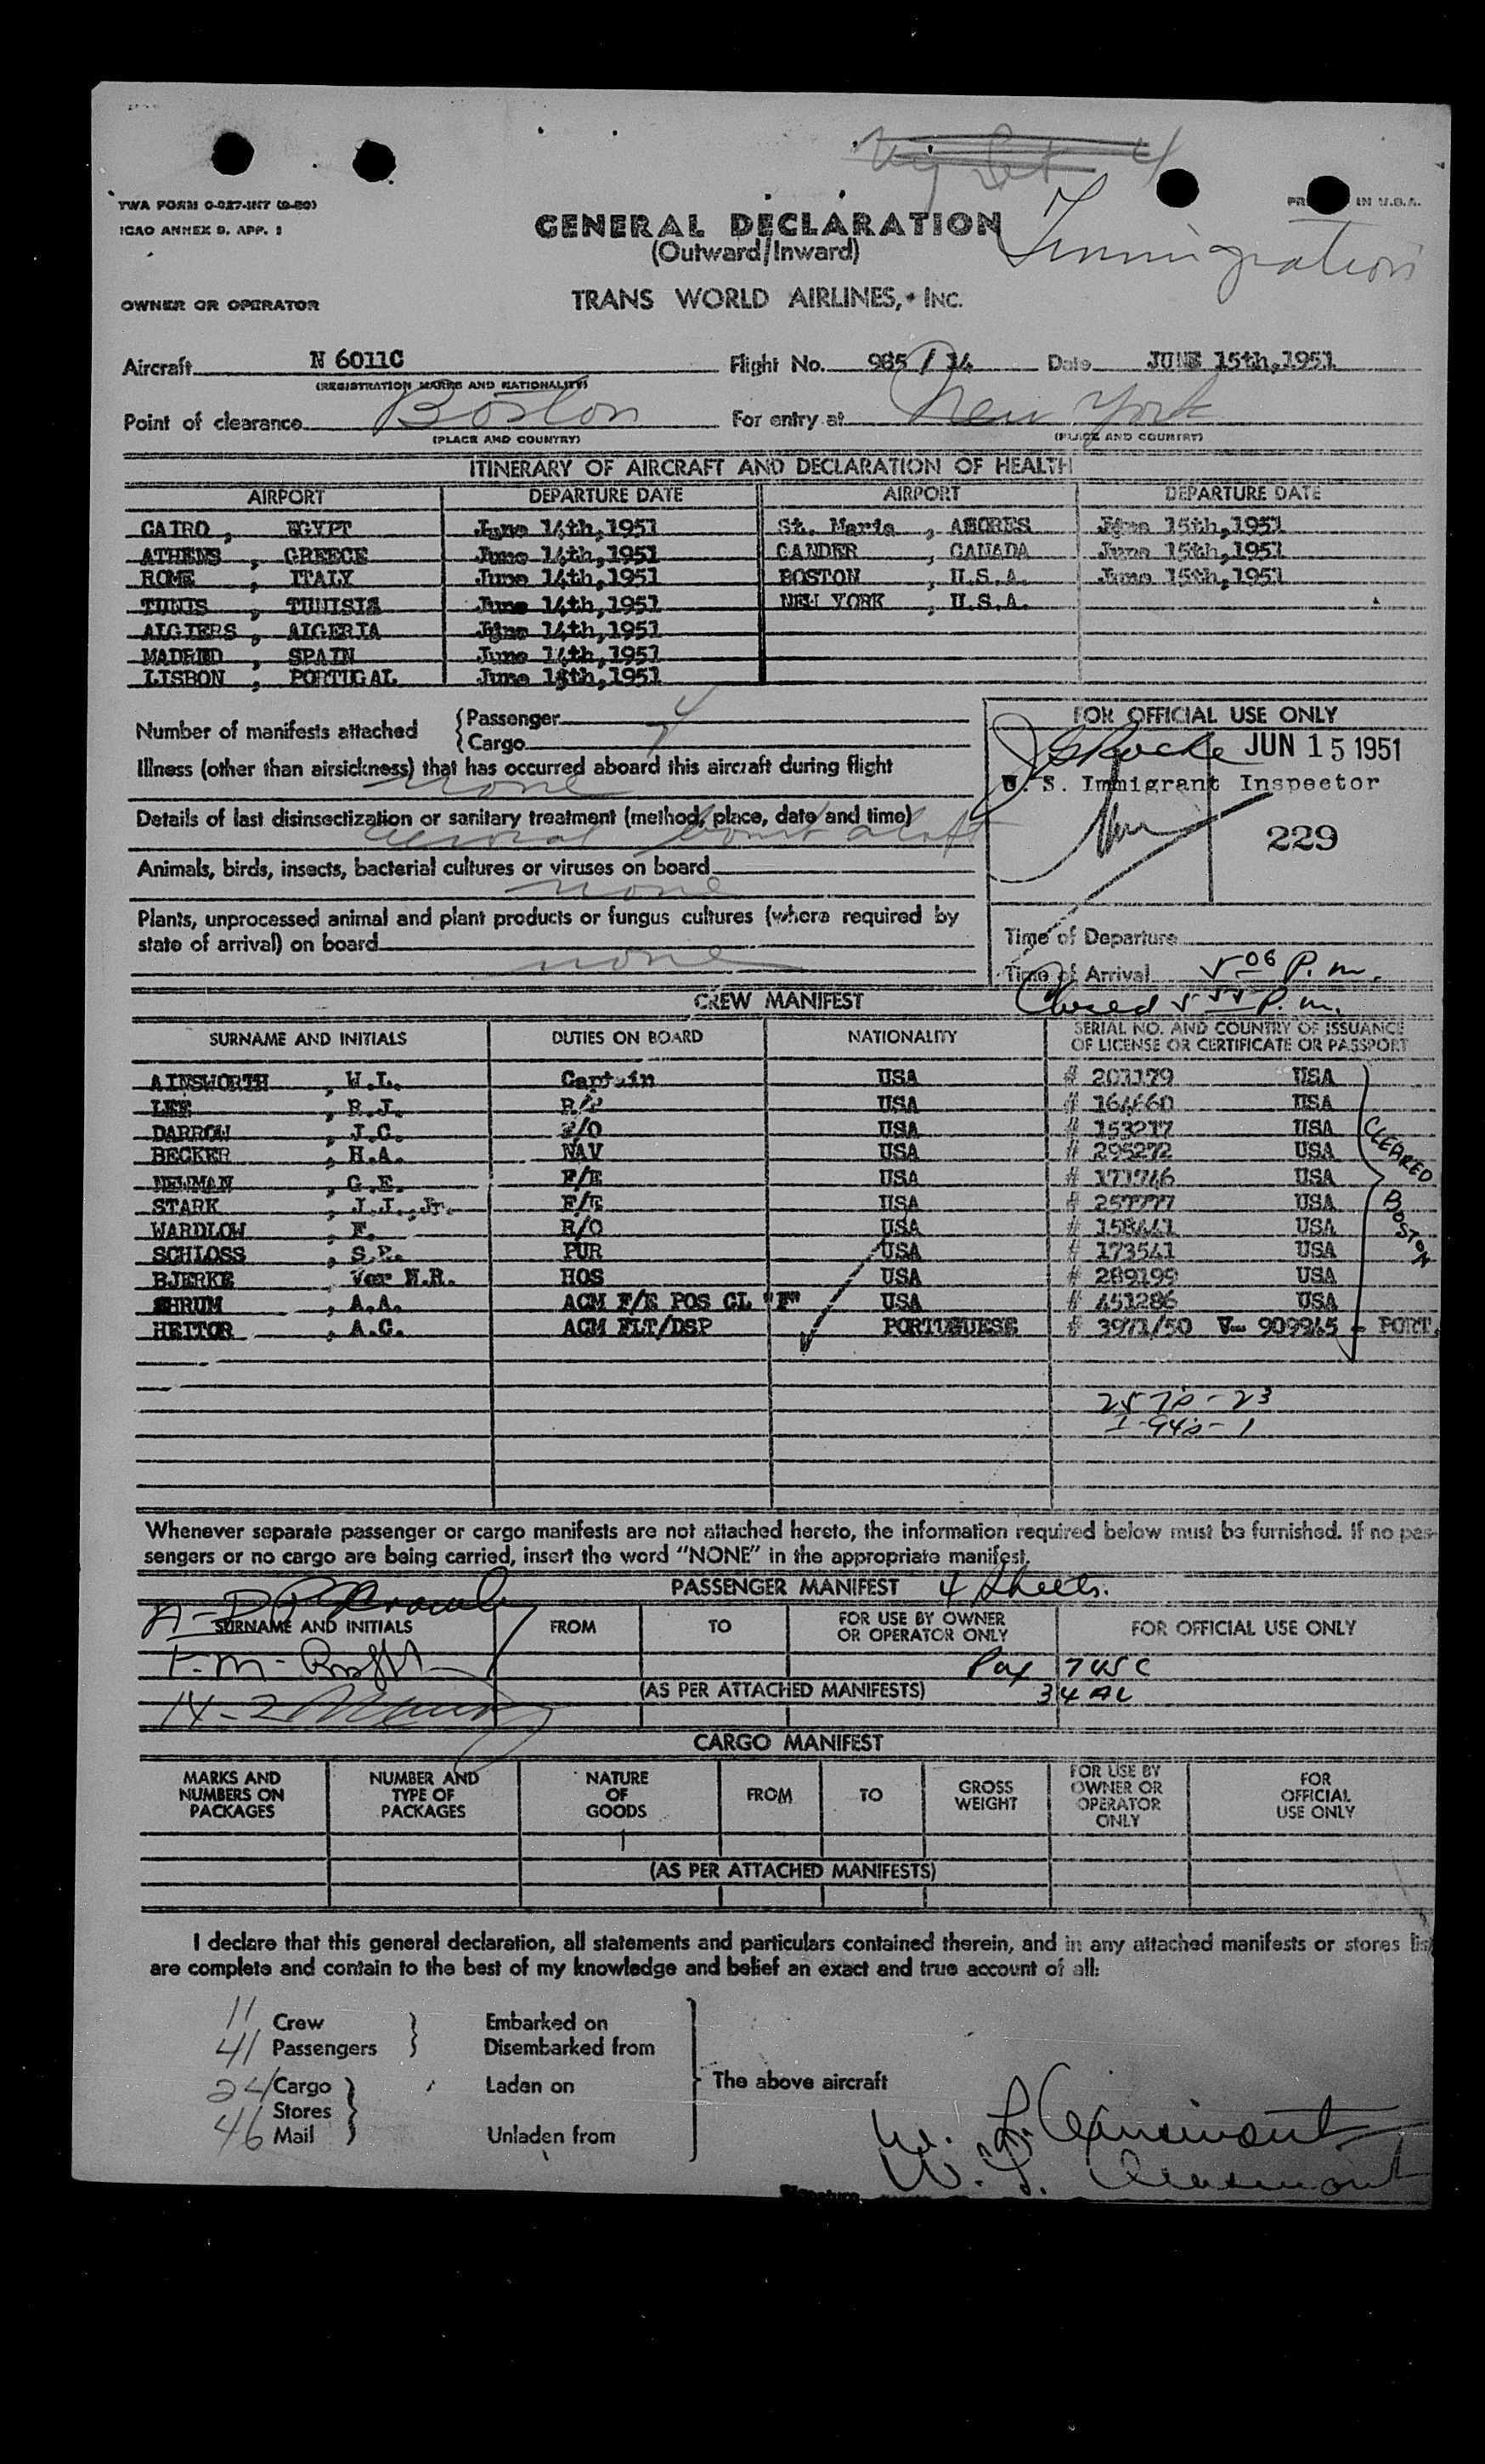 4
TWA FORM O-027-INT
ICAO ANNEX 9. APP. 1
IN U.S.A.
GENERAL DECLARATION
(Outward/Inward)
Immigration
OWNER OR OPERATOR
TRANS WORLD AIRLINES, INC.
Aircraft N 6011C Flight No. 985/14 Date JUNE 15th,1951
(REGISTRATION MARKS AND NATIONALITY)
Point of clearance Boston For entry at New York
(PLACE AND COUNTRY) (PLACE AND COUNTRY)
ITINERARY OF AIRCRAFT AND DECLARATION OF HEALTH
AIRPORT DEPARTURE DATE AIRPORT DEPARTURE DATE
CAIRO, EGYPT June 14th,1951 St. Maria, AZORES June 15th,1951
ATHENS, GREECE June 14th,1951 GANDER, CANADA June 15th,1951
ROME, ITALY June 14th,1951 BOSTON, U.S.A. June 15th,1951
TUNIS, TUNISIA June 14th,1951 NEW YORK, U.S.A.
ALGIERS, ALGERIA June 14th,1951
MADRID, SPAIN June 14th,1951
LISBON, PORTUGAL June 15th,1951
Number of manifests attached {Passenger 4
{Cargo
FOR OFFICIAL USE ONLY
JUN 15 1951
U. S. Immigrant Inspector
229
Illness (other than airsickness) that has occurred aboard this aircraft during flight
none
Details of last disinsectization or sanitary treatment (method, place, date and time)
aerosol bomb aloft
Animals, birds, insects, bacterial cultures or viruses on board
none
Plants, unprocessed animal and plant products or fungus cultures (where required by
state of arrival) on board
none
Time of Departure
Time of Arrival 5 06 P.m.
Closed 5 55 P.m.
CREW MANIFEST
SURNAME AND INITIALS DUTIES ON BOARD NATIONALITY SERIAL NO. AND COUNTRY OF ISSUANCE
OF LICENSE OR CERTIFICATE OR PASSPORT
AINSWORTH, W.L. Captain USA # 203179 USA
LEE, R.J. USA # 164660 USA
DARROW, J.C. F/O USA # 153217 USA
BECKER, H.A. NAV USA # 295272 USA
NEWMAN, G.E. F/E USA # 171746 USA
STARK, J.J.,Jr. F/E USA # 257777 USA
WARDLOW, F. R/O USA # 158441 USA
SCHLOSS, S.P. PUR USA # 173541 USA
BJERKE Ver N.R. HOS USA # 289199 USA
SHRUM, A.A. ACM F/E POS CL "F" USA # 451286 USA
HEITOR, A.C. ACM FLT/DSP PORTUGUESE # 3971/50 V- 909945 - PORT.
CLEARED
BOSTON
257's - 23
I-94's - 1
Whenever separate passenger or cargo manifests are not attached hereto, the information required below must be furnished. If no pas-
sengers or no cargo are being carried, insert the word "NONE" in the appropriate manifest.
PASSENGER MANIFEST 4 Sheets.
SURNAME AND INITIALS FROM TO FOR USE BY OWNER
OR OPERATOR ONLY FOR OFFICIAL USE ONLY
Pax 7 USC
34 AL
(AS PER ATTACHED MANIFESTS)
CARGO MANIFEST
MARKS AND
NUMBERS ON
PACKAGES NUMBER AND
TYPE OF
PACKAGES NATURE
OF
GOODS FROM TO GROSS
WEIGHT FOR USE BY
OWNER OR
OPERATOR
ONLY FOR
OFFICIAL
USE ONLY
(AS PER ATTACHED MANIFESTS)
I declare that this general declaration, all statements and particulars contained therein, and in any attached manifests or stores list
are complete and contain to the best of my knowledge and belief an exact and true account of all:
11 Crew Embarked on
41 Passengers Disembarked from
24 Cargo Laden on The above aircraft
Stores
46 Mail Unladen from
Signature